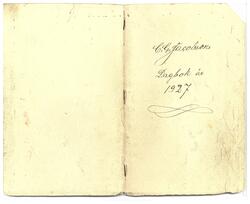 C. G. Jacobson
Dagbok år
1927